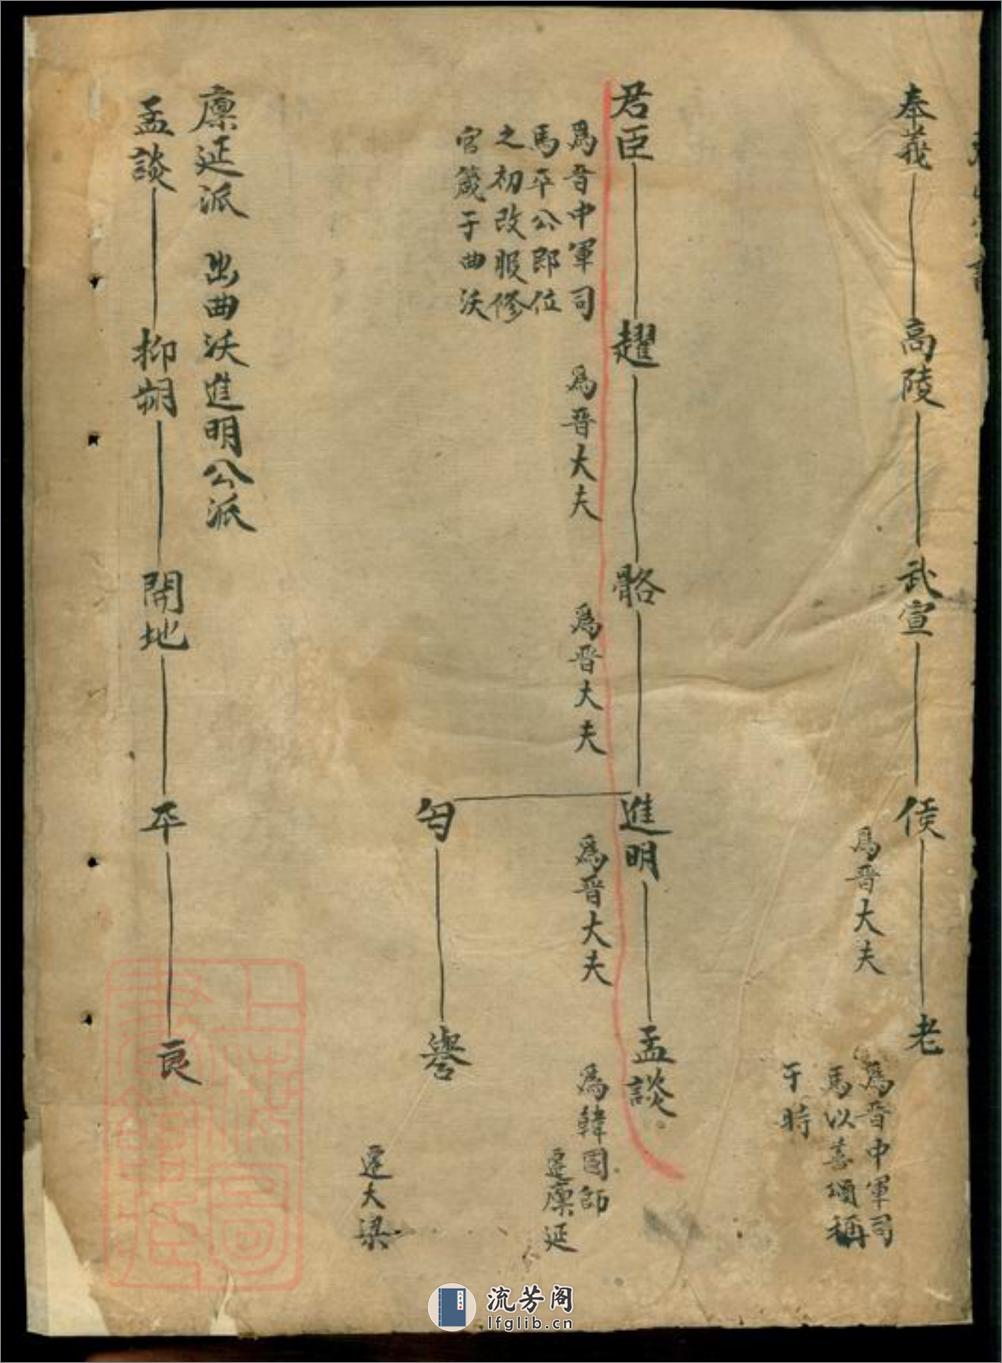 奉義 高陵 武宣 侯 老
爲晉大夫
爲晉中軍司
馬以喜頌稱
于時
君臣 趯 骼 進明 孟談
爲晉中軍司
馬平公即位
之初改服修
官箴于曲沃
爲晉大夫
爲晉大夫
爲晉大夫
爲韓國師
遷廩延
匄 譽
遷大梁
廩延派 出曲沃進明公派
孟談 抑朔 開地 平 良
流芳阁
lfglib.cn